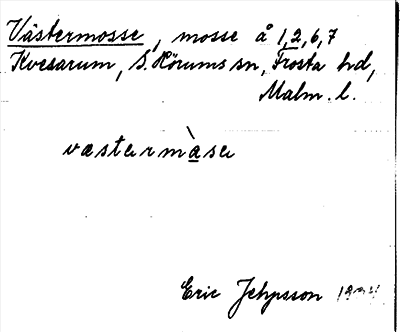 Västermosse, mosse å 1, 2, 6, 7
Kvesarum, S. Hörums sn, Frosta hd,
Malm. l.
væstermàse
Eric Jehpsson